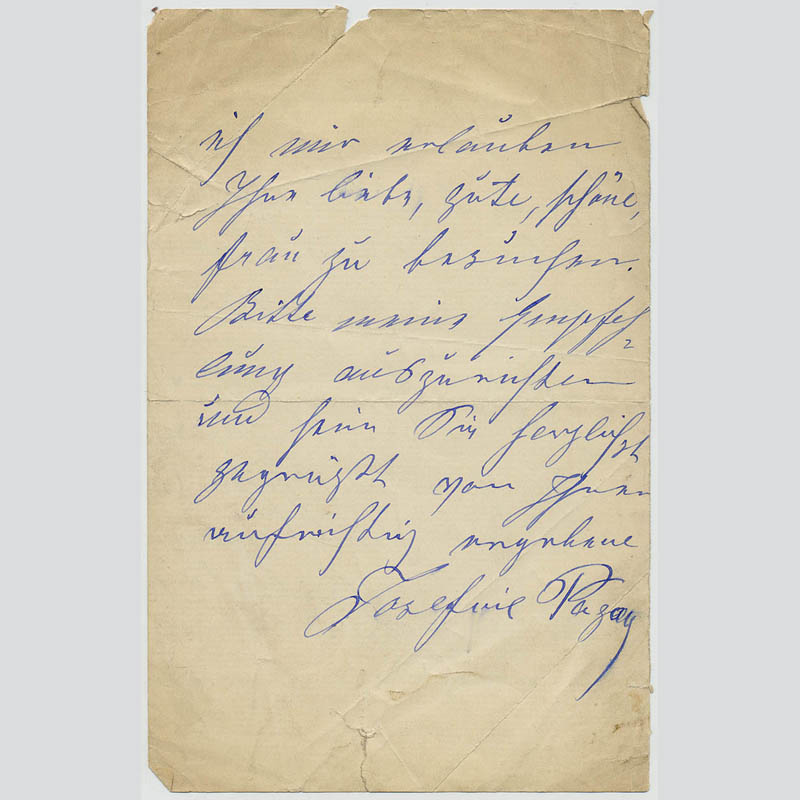 ich mir erlauben
Ihre liebe, gute, schöne,
Frau zu besuchen.
Bitte meine Empfeh=
lung auszurichten
und seien Sie herzlichst
gegrüßt von Ihrer
aufrichtig ergebene
Josefine